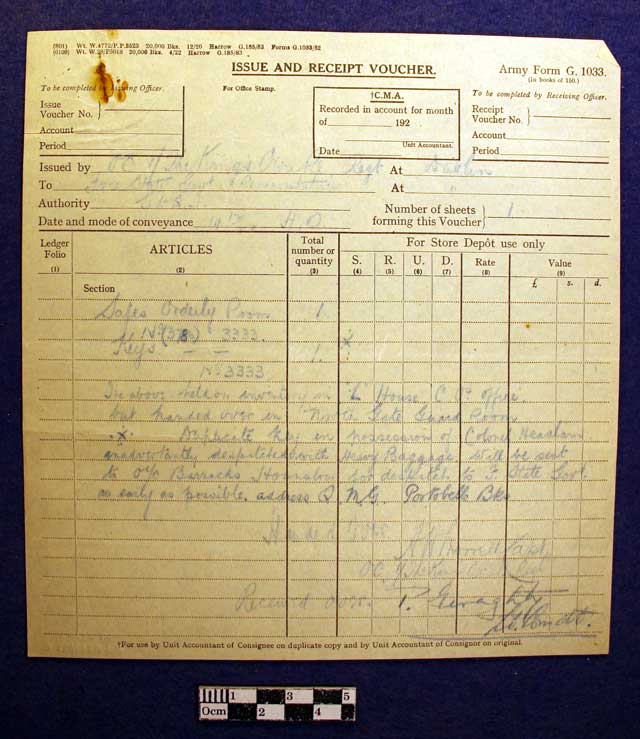 (801) Wt. W.4772/P.P.3523 20,000 Bks. 12/20 Harrow G.185/83 Forms G.1033/82
(6109) Wt. W.28/P9618 20,000 Bks. 4/22 Harrow G.185/83
ISSUE AND RECEIPT VOUCHER.
Army Form G. 1033.
(In books of 150.)
To be completed by Issuing Officer.
Issue
Voucher No. }
Account
Period
For Office Stamp.
†C.M.A.
Recorded in account for month
of 192
Unit Accountant.
Date
To be completed by Receiving Officer.
Receipt
Voucher No. }
Account
Period
Issued by O.C. The Kings Own Regt At Dublin
To At "
Authority
Number of sheets
forming this Voucher } 1.
Date and mode of conveyance H.D.
Ledger Folio (1)
ARTICLES (2)
Total number or quantity (3)
For Store Depôt use only
S. (4) R. (5) U. (6) D. (7) Rate (8) Value (9)
£ s. d.
Section
Safes Orderly Room 1.
No. 3333.
Keys — — 1. x
No 3333
The above held on inventory in "L" House C.O's Office
but handed over in North Gate Guard Room
x Duplicate key in possession of Colonel Headlam
inadvertently despatched with Heavy Baggage. Will be sent
to O i/c Barracks Hounslow for despatch to F. State Govt
as early as possible. address Q.M.G. Portobello Bks
Handed Over
Capt.
O.C.
Received over. P. Geraghty
Comdt.
†For use by Unit Accountant of Consignee on duplicate copy and by Unit Accountant of Consignor on original.
0cm 1 2 3 4 5